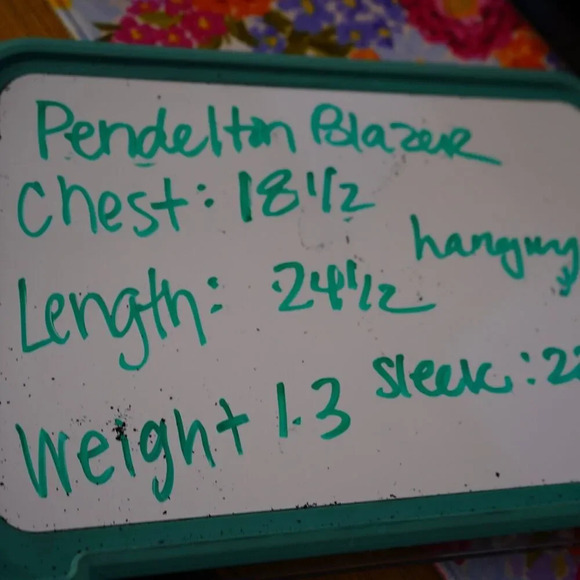 Pendelton Blazer
Chest: 18 1/2
hanging
Length: 24 1/2
Sleek: 22
Weight 1.3